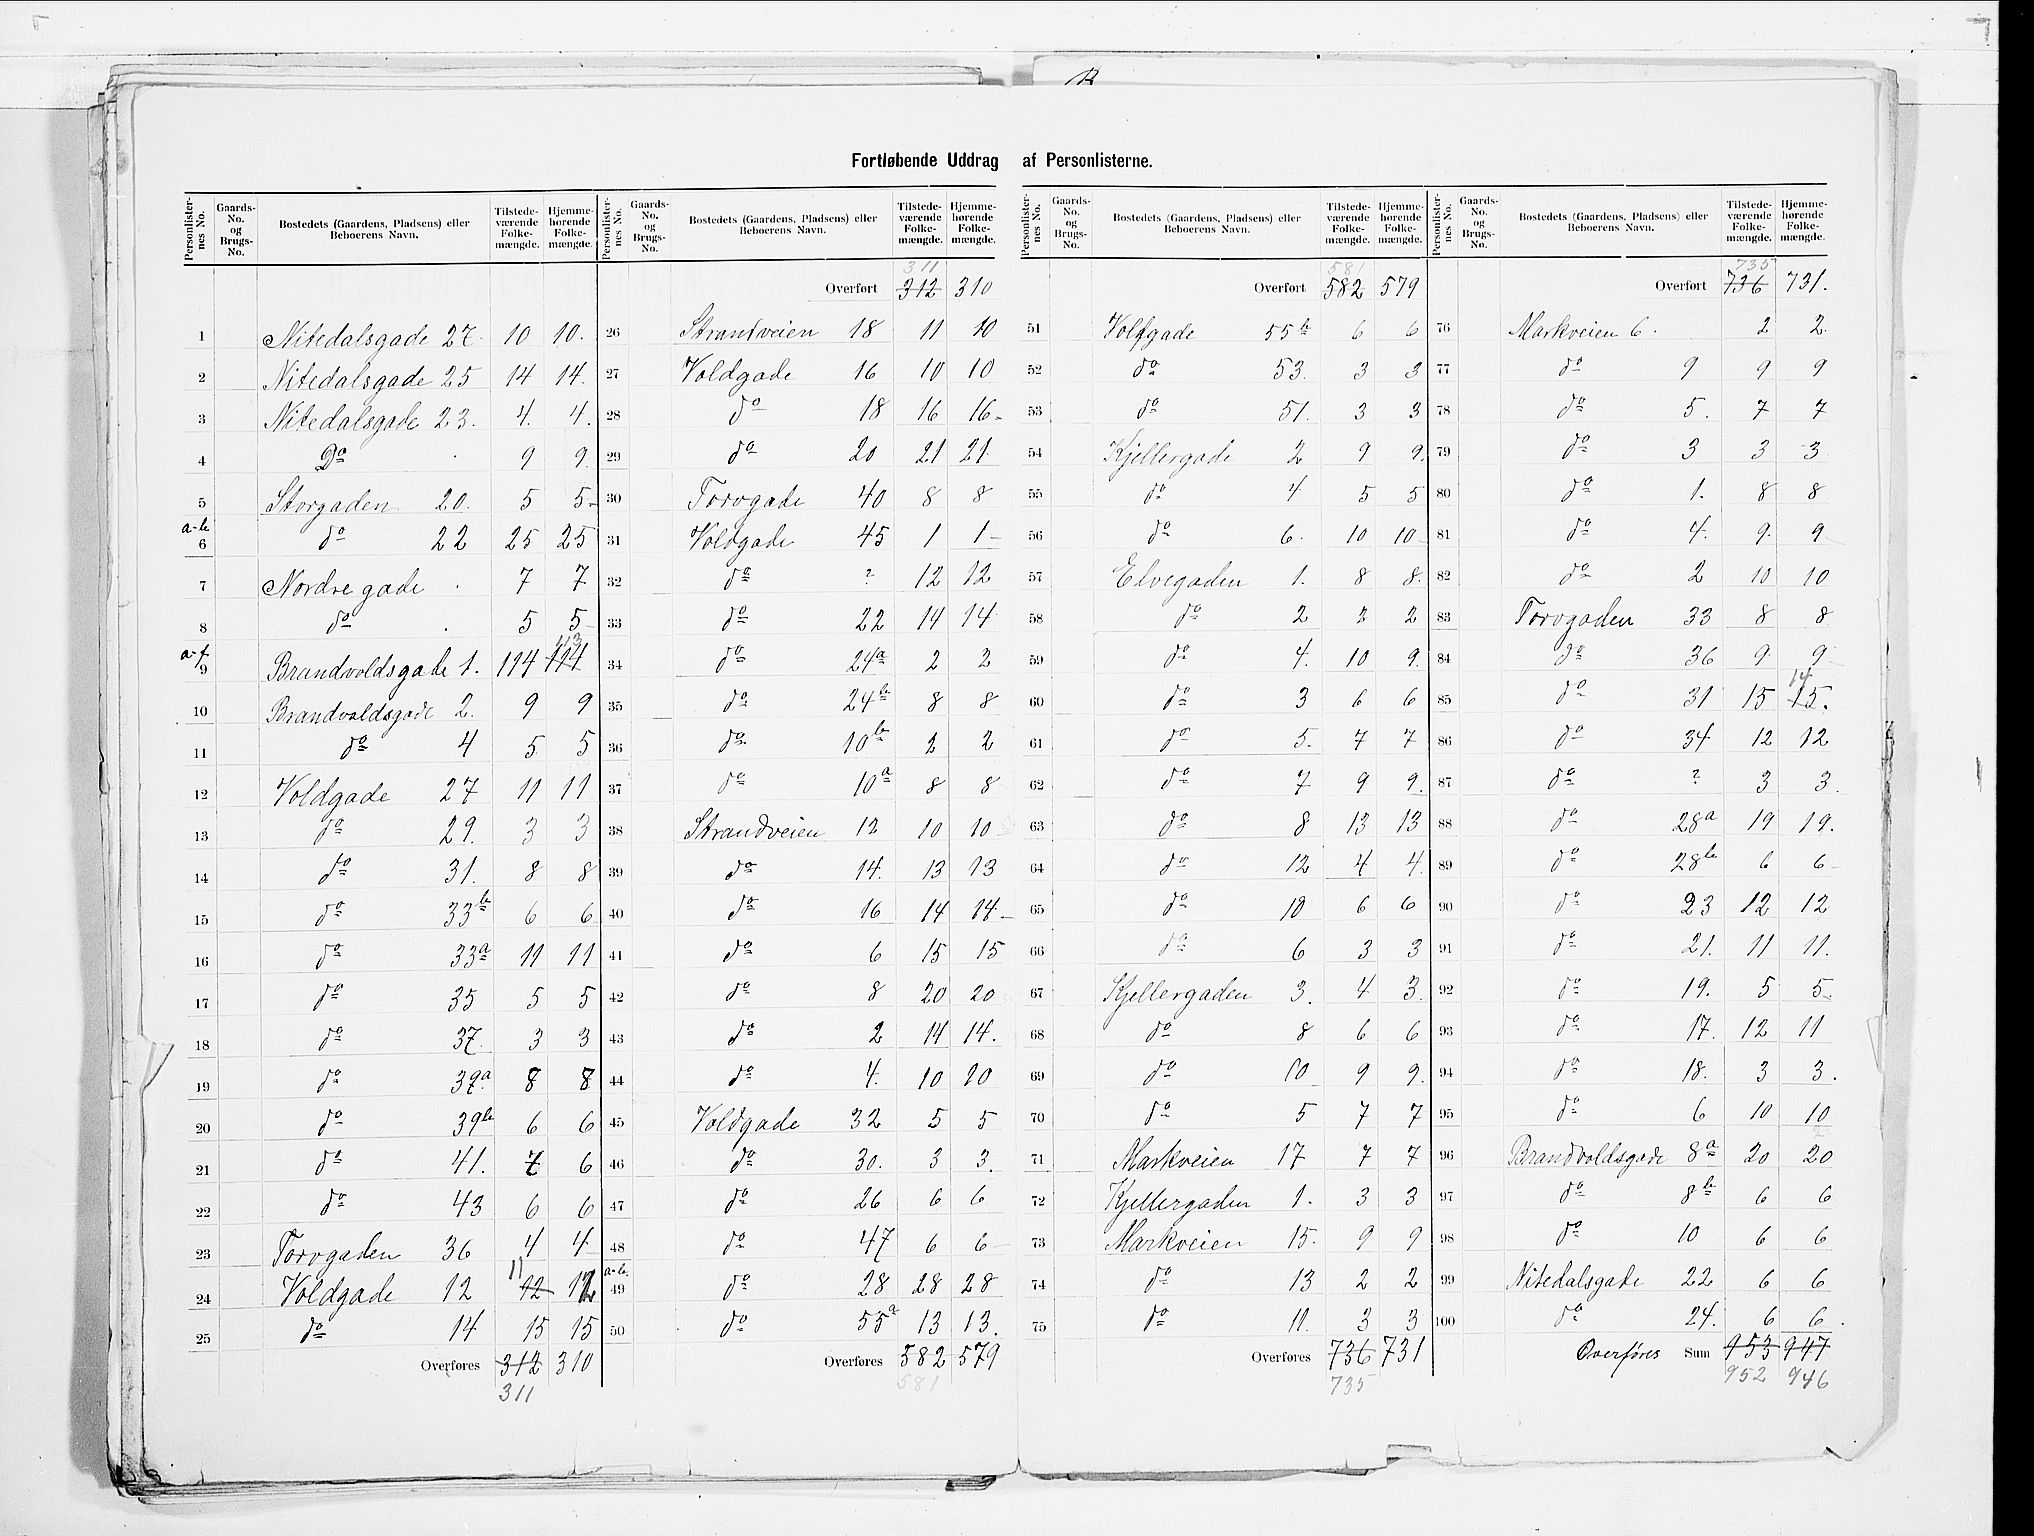 Fortløbende Uddrag af Personlisterne.
Personlisternes No. | Gaards-No. og Brugs-No. | Bostedets (Gaardens, Pladsens) eller Beboerens Navn. | Tilstedeværende Folkemængde. | Hjemmehørende Folkemængde.
1 Nitedalsgade 27. 10 10.
2 Nitedalsgade 25 14 14.
3 Nitedalsgade 23. 4. 4.
4 Do . 9 9.
5 Storgaden 20. 5 5.
a-b 6 do 22 25 25
7 Nordre gade . 7 7
8 do . 5 5
a-f 9 Brandvoldsgade 1. 114 114 113
10 Brandvoldsgade 2. 9 9
11 do 4 5 5
12 Voldgade 27 11 11
13 do 29. 3 3
14 do 31. 8 8
15 do 33b 6 6
16 do 33a 11 11
17 do 35 5 5
18 do 37. 3 3
19 do 39a 8 8
20 do 39b 6 6
21 do 41. 7 6
22 do 43 6 6
23 Torvgaden 36 4 4
24 Voldgade 12 11 12 12
25 do 14 15 15
Overføres 312 310
311
Personlisternes No. | Gaards-No. og Brugs-No. | Bostedets (Gaardens, Pladsens) eller Beboerens Navn. | Tilstedeværende Folkemængde. | Hjemmehørende Folkemængde.
311
Overført 312 310
26 Strandveien 18 11 10
27 Voldgade 16 10 10
28 do 18 16 16
29 do 20 21 21
30 Torvgade 40 8 8
31 Voldgade 45 1 1
32 do ? 12 12
33 do 22 14 14
34 do 24a 2 2
35 do 24b 8 8
36 do 10b 2 2
37 do 10a 8 8
38 Strandveien 12 10 10
39 do 14. 13 13
40 do 16 14 14
41 do 6 15 15
42 do 8 20 20
43 do 2 14 14.
44 do 4. 10 10
45 Voldgade 32 5 5
46 do 30. 3 3.
47 do 26 6 6
48 do 47 6 6
a-b. 49 do 28 28 28
50 do 55a 13 13.
Overføres 582 579
581
Personlisternes No. | Gaards-No. og Brugs-No. | Bostedets (Gaardens, Pladsens) eller Beboerens Navn. | Tilstedeværende Folkemængde. | Hjemmehørende Folkemængde.
581
Overført 582 579
51 Voldgade 55b 6 6
52 do 53. 3 3
53 do 51. 3 3
54 Kjellergade 2 9 9.
55 do 4 5 5
56 do 6. 10 10
57 Elvegaden 1. 8 8.
58 do 2 2 2
59 do 4. 10 9.
60 do 3 6 6
61 do 5. 7 7
62 do 7 9 9.
63 do 8 13 13
64 do 12 4 4.
65 do 10 6 6
66 do 6 3 3
67 Kjellergaden 3. 4 3.
68 do 8 6 6
69 do 10 9 9.
70 do 5 7 7
71 Markveien 17 7 7
72 Kjellergaden 1. 3 3
73 Markveien 15. 9 9
74 do 13 2 2
75 do 11. 3 3
Overføres 736 731
735
Personlisternes No. | Gaards-No. og Brugs-No. | Bostedets (Gaardens, Pladsens) eller Beboerens Navn. | Tilstedeværende Folkemængde. | Hjemmehørende Folkemængde.
735
Overført 736 731.
76 Markveien 6. 2 2
77 do 9 9 9
78 do 5. 7 7
79 do 3 3 3
80 do 1. 8 8
81 do 4. 9. 9
82 do 2 10 10
83 Torvgaden 33 8 8
84 do 36 9 9
85 do 31 15 14 15.
86 do 34 12 12
87 do ? 3 3.
88 do 28a 19 19.
89 do 28b 6 6
90 do 23 12 12
91 do 21. 11 11.
92 do 19. 5 5.
93 do 17. 12 11
94 do 18. 3 3.
95 do 6 10 10
96 Brandvoldsgade 8a 20 20
97 do 8b 6 6
98 do 10 6 6
99 Nitedalsgade 22 6 6
100 do 24. 6 6.
Overføres Sum 953 947
952 946